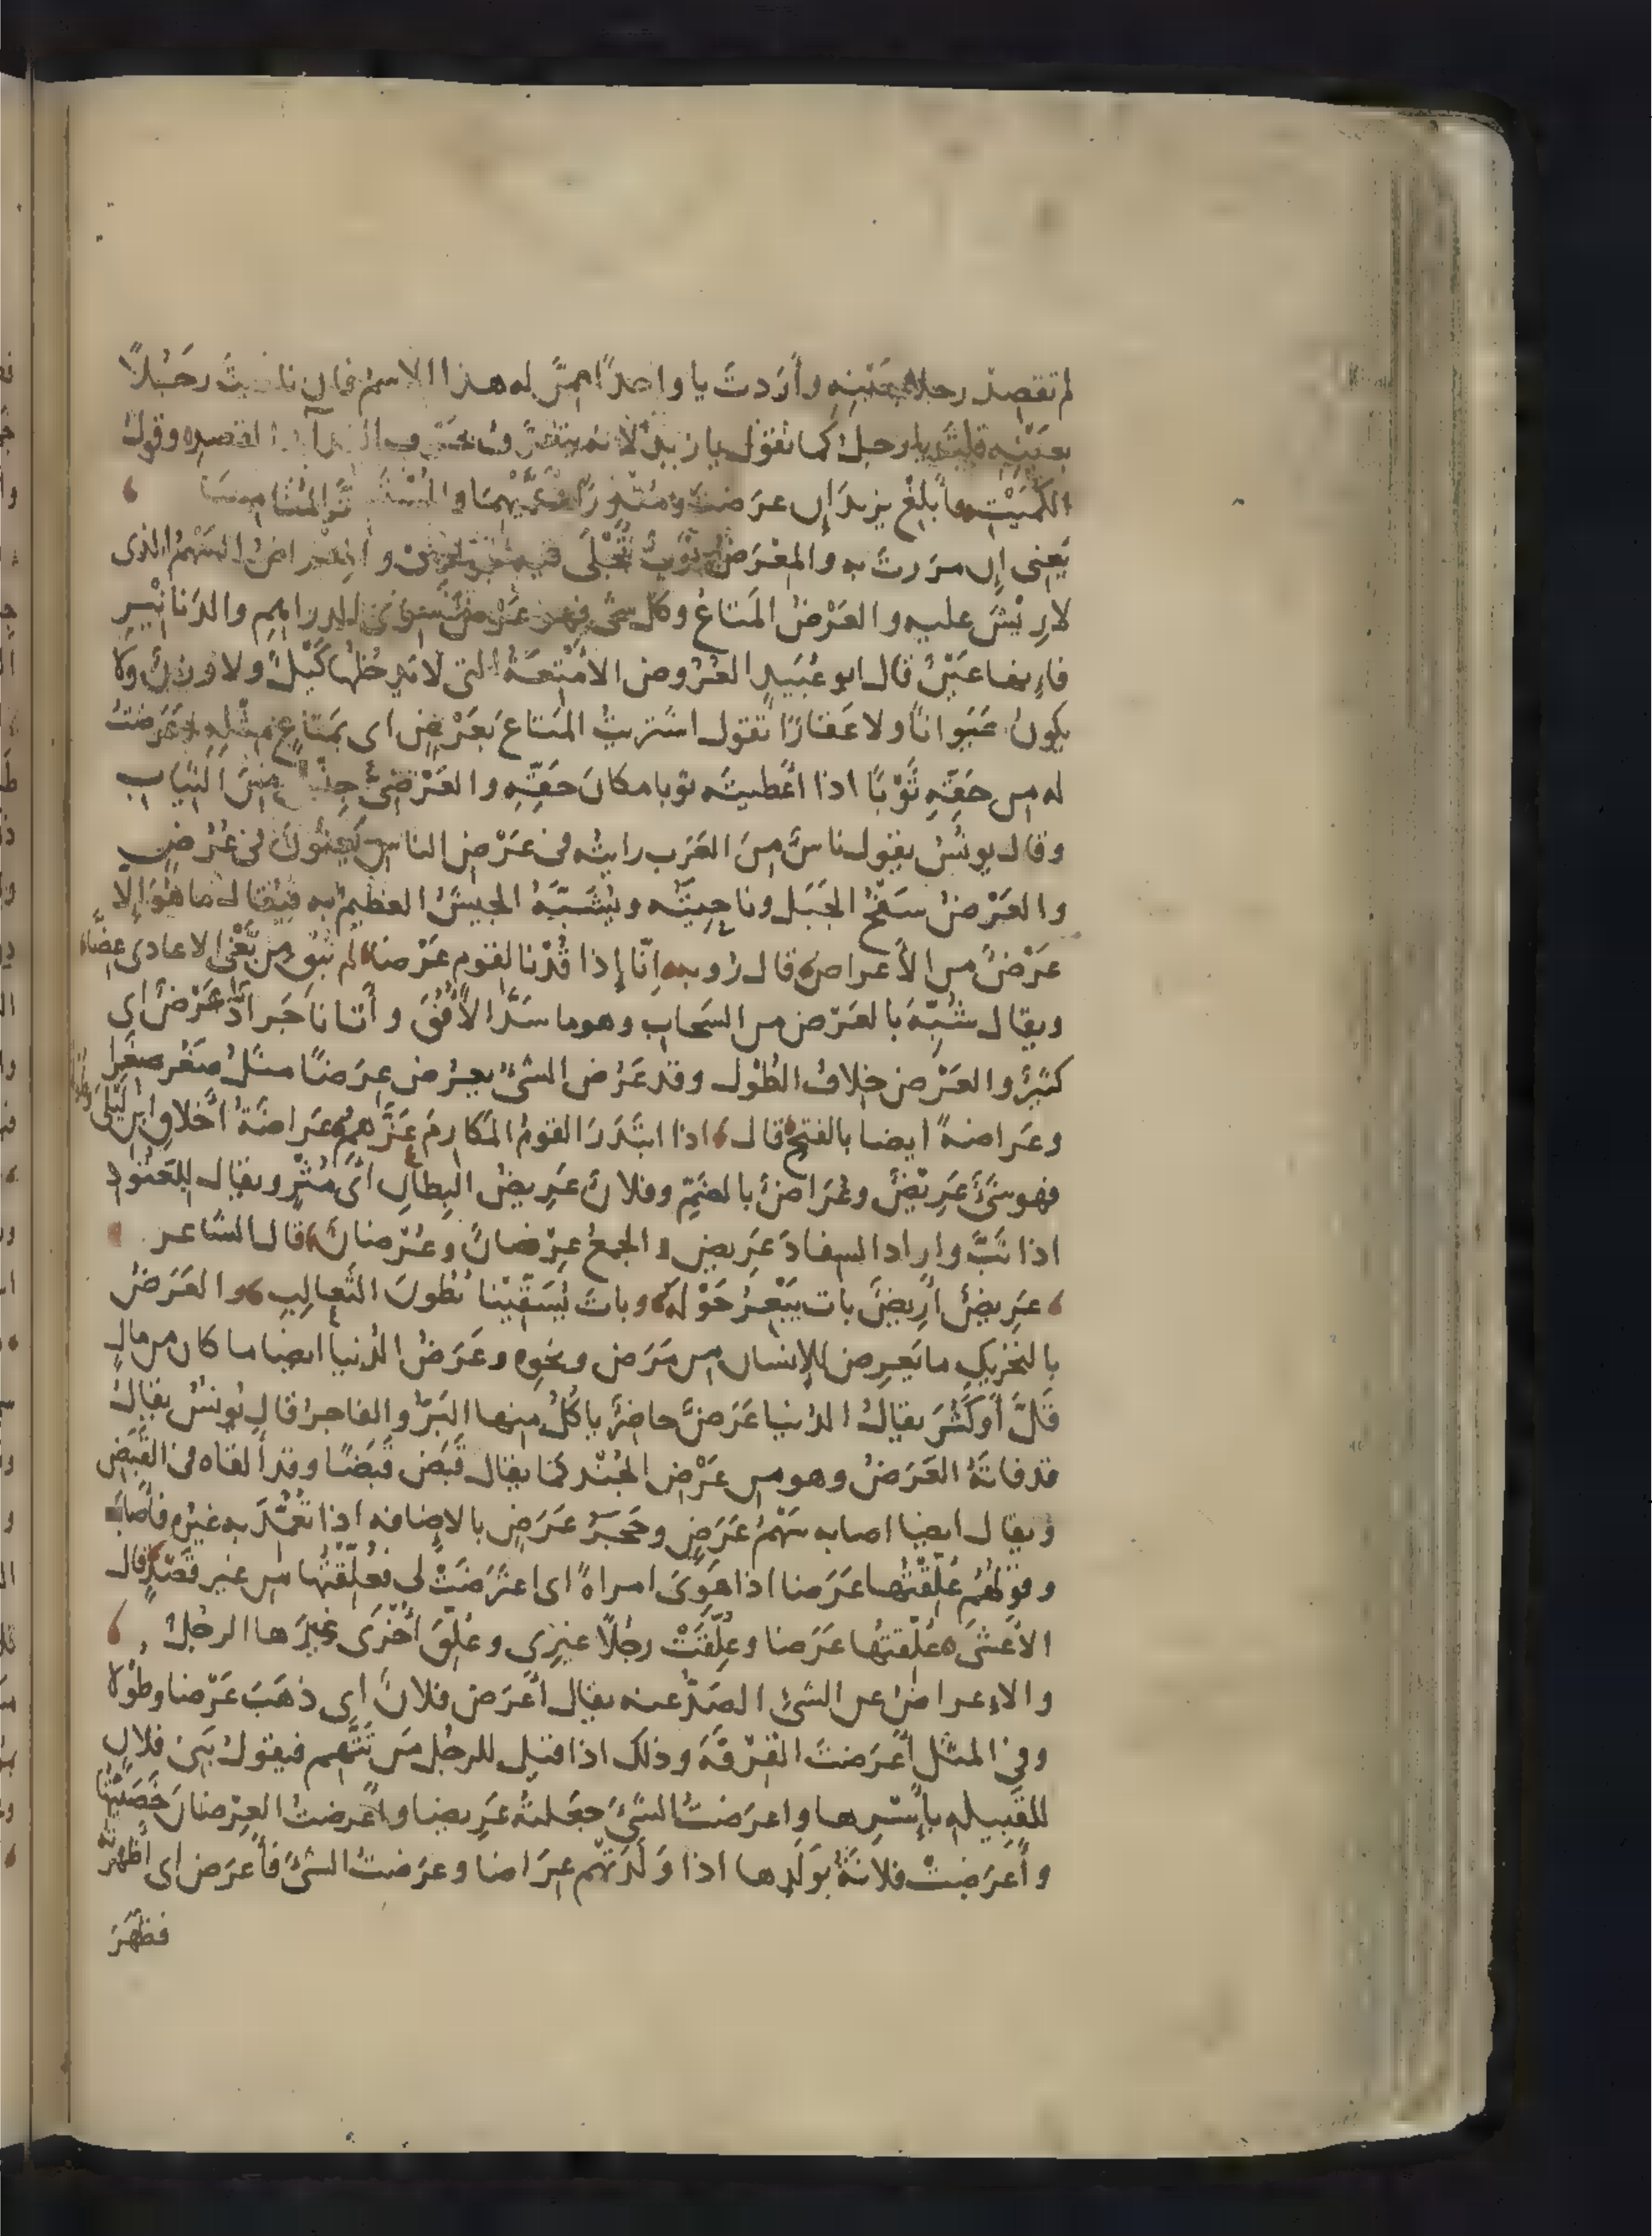 لم تقصد رجلا بعَيْنِه وأرَدتَ يا واحدًا ممّن له هذا الاسم فان ناديتَ رجُلًا
بعَيْنِه قلتَ يا رجلُ كما تقول يا زيدُ لانه يتعرّف بحرف النداء والقصد وقول
الكُمَيْت فأبلغ يزيدَ إن عرضتَ ومنذرًا وعَمَّيْهما والمُسْتَسِرَّ المُنامِسَا
يَعنى إن مررتَ به والمِعْرَضُ ثَوْبٌ تُجْلَى فيه الجَوارِى والمِعْراضُ السَهْمُ الذى
لارِيْشَ عليه والعَرْضُ المَتاعُ وكل شئ فهو عَرْضٌ سِوَى الدراهِم والدَنانِيْرِ
فإنها عَيْنٌ قال ابو عُبَيدٍ العُرُوض الأمْتِعَةُ التى لا يَدخُلُها كَيْلٌ ولا وزنٌ ولا
يكونُ حَيَوانًا ولا عَقارًا تقول اشتريتُ المتاعَ بعَرْضٍ اى بمَتاعٍ مِثْلِهِ وعَرَضتُ
له من حَقِّهِ ثَوْبًا اذا أعْطيتَه ثوبا مكانَ حَقِّهِ والعَرْضِىُّ جِنْسٌ مِنَ الثِيابِ
وقال يونُسُ يقول ناسٌ مِنَ العَرَب رايتُه فى عَرْضِ الناس يَعْنُونَ فى عُرْضٍ
والعَرْضُ سَفْحُ الجَبَلِ وناحِيَتُه ويُشَبَّهُ الجيشُ العظيمُ به فيُقال ما هُوَ إلّا
عَرْضٌ من الأعراض قال رُوبه إنّا إذا قُدْنا لقوم عَرْضا لم نُبْقِ من بَغْىِ الاعادى عِضَّا
ويقال شُبِّهَ بالعَرْض من السَحابِ وهو ما سَدَّ الأُفُقَ وأتانا جَرادٌ عَرْضٌ اى
كثيرٌ والعَرْضُ خِلافُ الطُوْل وقد عَرُضَ الشئُ يعرُض عِرَضًا مثلُ صَغُر صِغَرا
وعَراضةً ايضا بالفتح قال اذا ابْتَدَرَ القومُ المكارِمَ عَزَّهم عَراضَةُ اخْلاقِ ابنِ لَيْلَى وطُولُها
فهو شئٌ عَرِيْضٌ وعُراضٌ بالضَمِّ وفلانٌ عَرِيضُ البِطانِ اى مُثْرٍ ويقال للعَتُودِ
اذا نَبَّ واراد السِفادَ عَرِيضٌ والجمعُ عِرْضانٌ وعُرْضانٌ قال الشاعر
عَرِيضٌ أرِيضٌ بات يَيْعِرُ حَوْلَه وباتَ يُسَقِّيْنا بُطونَ الثَعالِبِ والعَرَضُ
بالتحْرِيكِ ما يَعرِض للإنسان من مَرَض ونحوِه وعَرَضُ الدُنيا ايضا ما كان من مالٍ
قَلَّ أوكَثُرَ يقالُ الدُنيا عَرَضٌ حاضِرٌ ياكُلُ منها البَرُّ والفاجرُ قال يُونُسُ يقالُ
قد فاتَهُ العَرَضُ وهو من عَرْضِ الجُنْد كما يقال قَبَض قَبْضًا وقد ألقاه فى القَبَضِ
ويقال ايضا اصابه سَهْمُ عَرَضٍ وحَجَرُ عَرَضٍ بالاضافه اذا تُعُمِّدَ به غيرُه فأصابَه
وقولُهُم عُلِّقْتُها عَرَضا اذا هَوِىَ امراةً اى اعتَرَضَتْ لى فعُلِّقْتُها من غير قَصْدٍ قال
الأعْشَى عُلِّقتُها عَرَضا وعُلِّقَتْ رجُلًا غيرى وعُلِّقَ أُخْرَى غيرَها الرجُلُ
والاءِعراضُ عن الشئِ الصَدُّ عنه يقال أعْرَض فلانٌ اى ذهَبَ عَرْضا وطُوْلا
وفى المثل أعْرَضتَ القِرْفَةَ وذلك اذا قيل للرجُل مَن تَتَّهِم فيقول بَنِى فلانٍ
للقَبِيله بأسْرِها واعرَضتُ الشئَ جعَلتُه عَرِيضا وأعْرضتُ العِرْضانَ خَصَيْتُها
وأعرَضتْ فلانةُ بوَلَدِها اذا وَلَدَتْهم عِراضا وعرَضتُ الشئَ فأعرَض اى أظْهرتُه
فظهَرَ